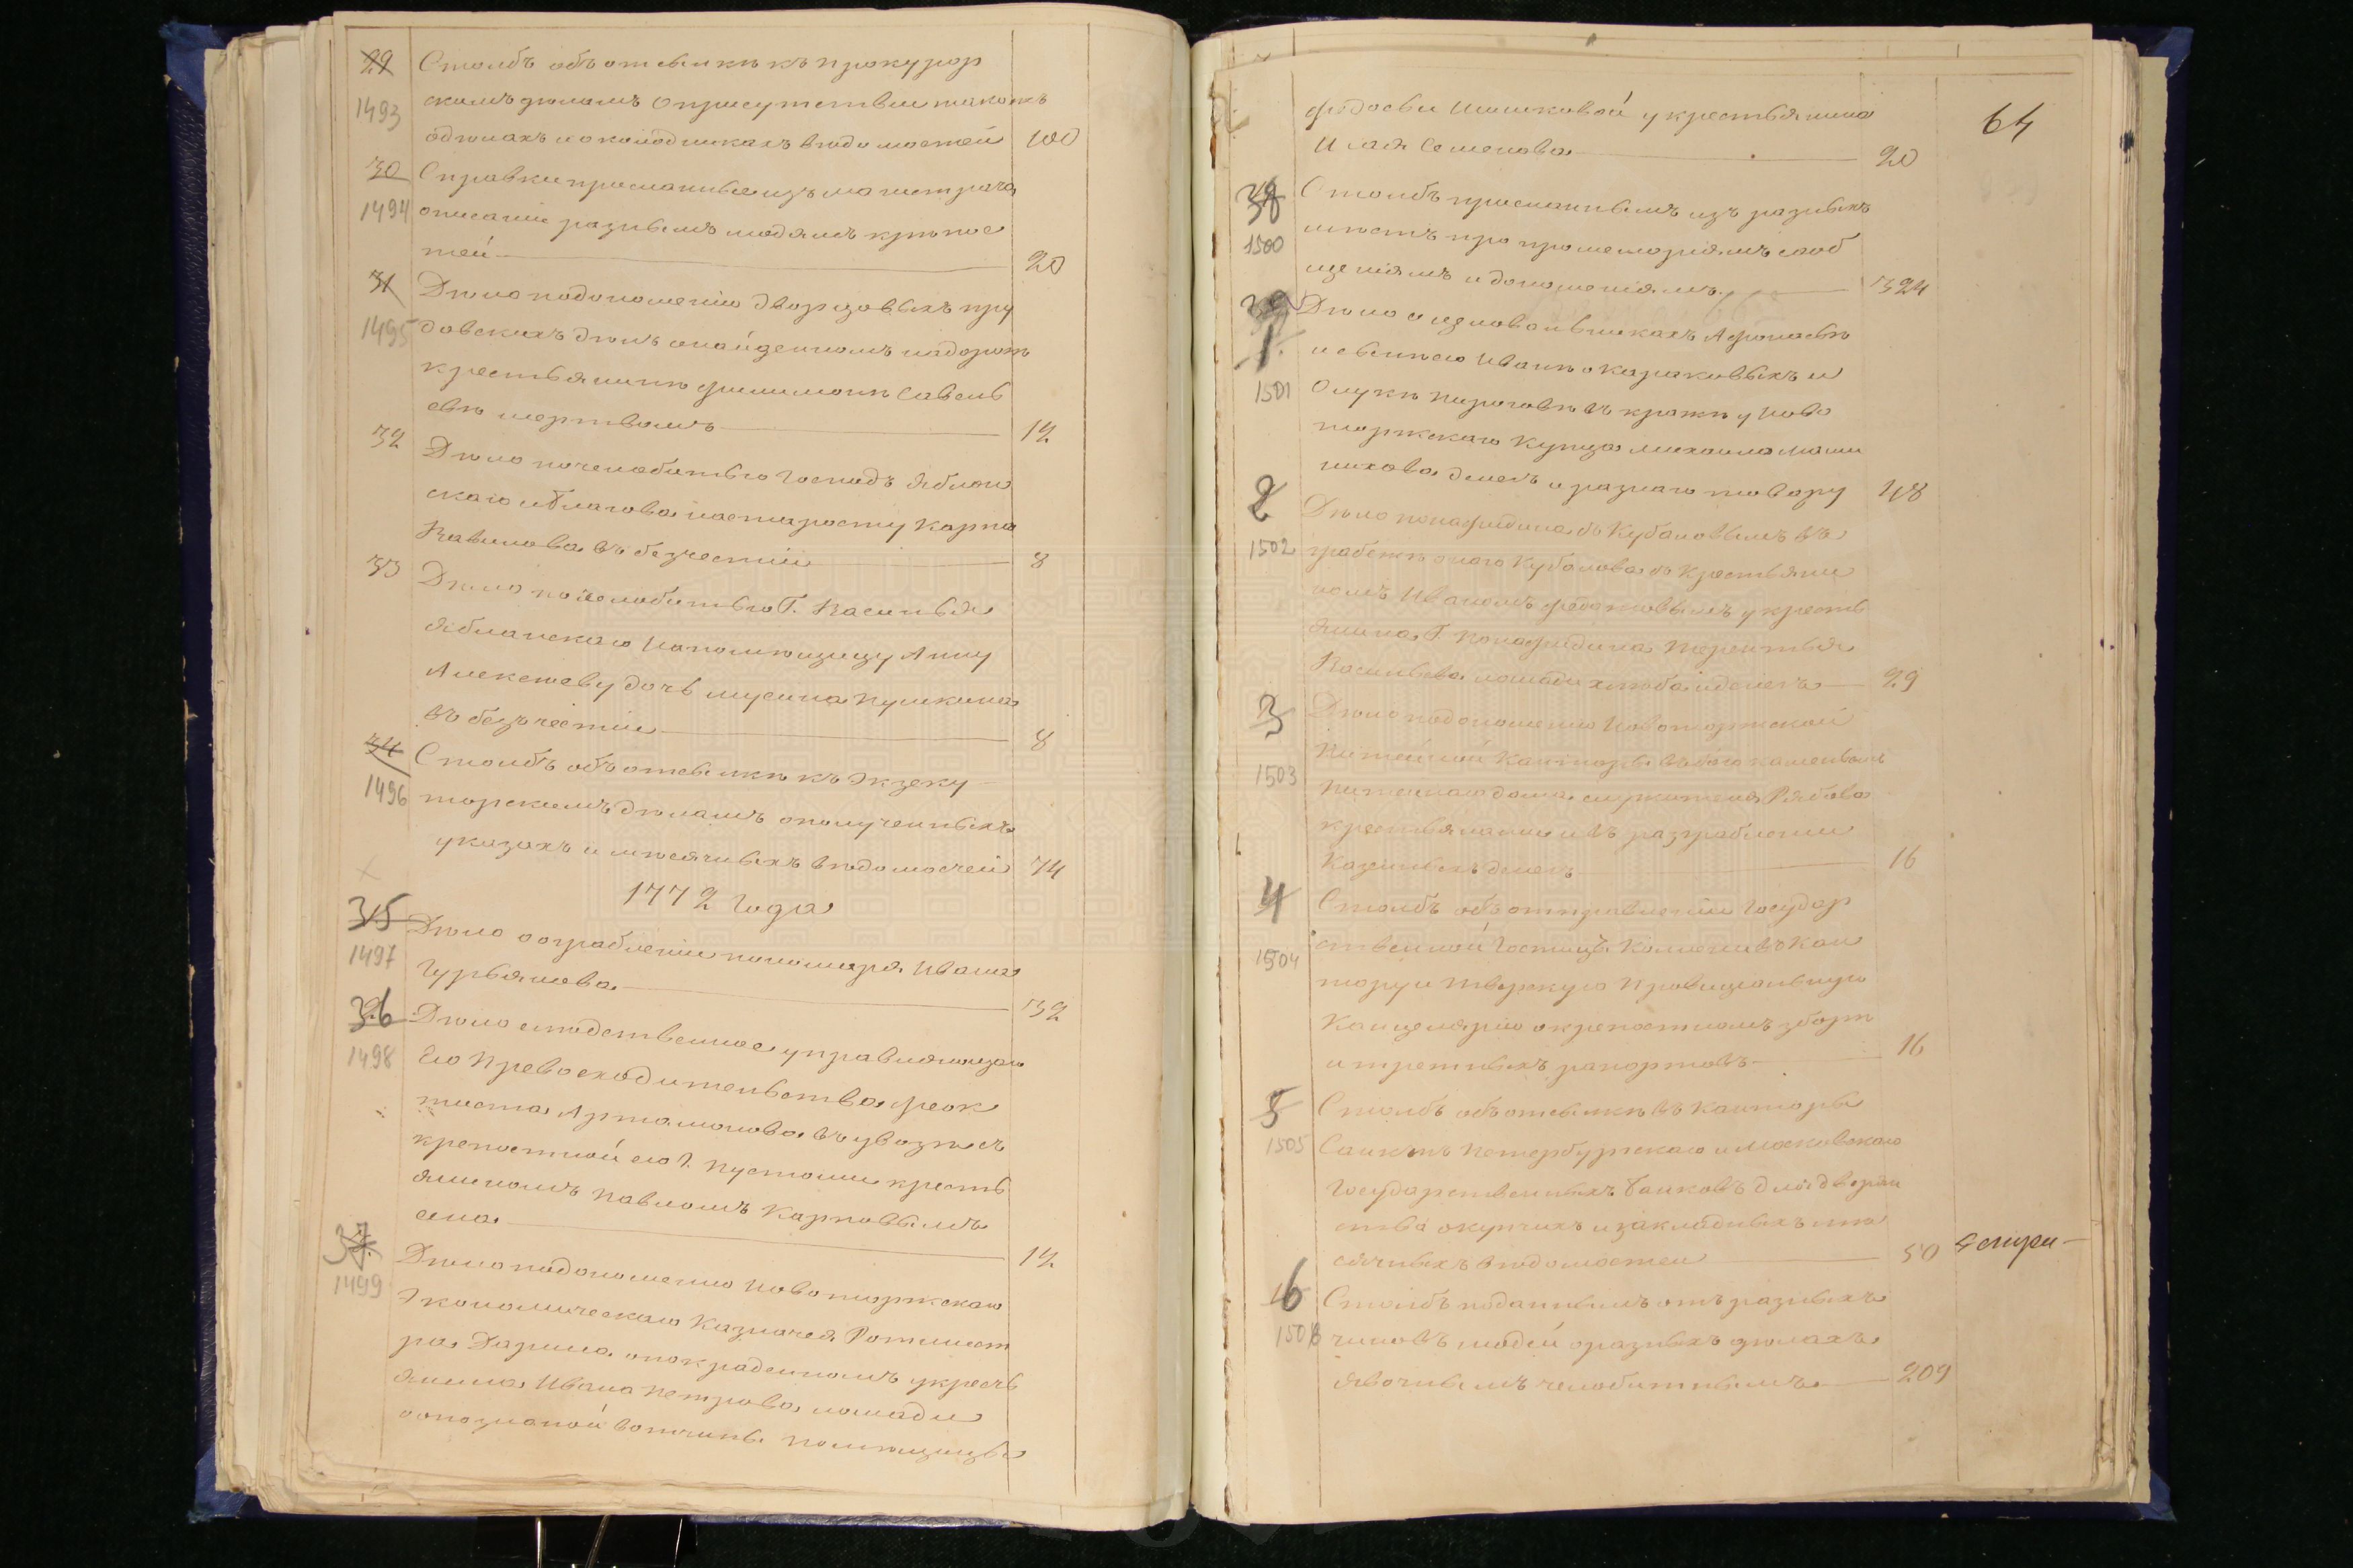 29 Столбъ объ отсылкѣ къ прокурор
1493 скимъ дѣламъ о присутствии такожъ
о дѣлахъ и о колодникахъ вѣдомостей 100
30 Справки присланные изъ магистрата
1494 о писании разнымъ людямъ крѣпос
тей 20
31 Дѣло по доношению дворцовыхъ пру
1495 довскихъ дѣлъ о найденномъ на дорогѣ
крестьянинѣ Филимонѣ Савель
евѣ мертвомъ 12
32 Дѣло по челобитью Господъ Яблон
скаго и Благова на старосту Карпа
Вавилова въ безчестіи 8
33 Дѣло по челобитью Г. Василья
Яблонскаго на помѣщицу Анну
Алексѣеву дочь Мусина Пушкина
въ безчестіи 8
34 Столбъ объ отсылкѣ къ Экзеку
1496 торскимъ дѣламъ о полученныхъ
указахъ и мѣсячныхъ вѣдомостей 74
1772 Года
35 Дѣло о ограблении пономаря Ивана
1497 Гурьянова 32
36 Дѣло слѣдственное управляющаго
1498 Его Превосходительства Феок
тиста Артамонова въ увозѣ съ
крепостной его Г. пустоши кресть
яниномъ Павломъ Карповымъ
сена 12
37 Дѣло по доношению Новоторжскаго
1499 Экономическаго Казначея Ротмист
ра Ларина о покраденномъ у кресть
янина Ивана Петрова лошади
о опознаной вотчины помѣщицы
64
Федосьи Шишковой у крестьянина
Илая Семенова 20
38 Столбъ присланнымъ изъ разныхъ
1500 мѣстъ про промемориямъ сооб
щениямъ и доношениямъ 324
39
1 Дѣло о целовальникахъ Афонасьѣ
и сыне его Иванѣ Казаковыхъ и
1501 О Лукѣ Пироговѣ въ кражѣ у ново
торжскаго Купца Михаила Маши
нихова денегъ и разнаго товару 48
2 Дѣло Понафидина съ Кубаловымъ въ
1502 грабежѣ онаго Кубалова съ Крестьяни
номъ Иваномъ Федотовымъ у кресть
янина Г. Понафидина Терентья
Васильева лошади хлеба и денегъ 29
3 Дѣло по доношению Новоторжской
Питейной Канторы въ бою каменнаго
1503 Питейнаго дома служителя Рябова
крестьянами и въ разграблении
Казенныхъ денегъ 16
4 Столбъ объ отправлении Государ
ственной Юстицъ Коллегии въ Кан
1504 тору и Тверскую Провинциальную
Канцелярию о крепостномъ зборѣ
и третныхъ рапортовъ 16
5 Столбъ объ отсылкѣ въ Канторы
1505 Санктъ Петербургскаго и Московскаго
Государственныхъ банковъ для дворян
ства о купчихъ и закладныхъ мѣ
сячныхъ вѣдомостей 50
6 Столбъ поданнымъ отъ разныхъ
1506 чиновъ людей о разныхъ дѣлахъ
явочнымъ челобитнымъ 209